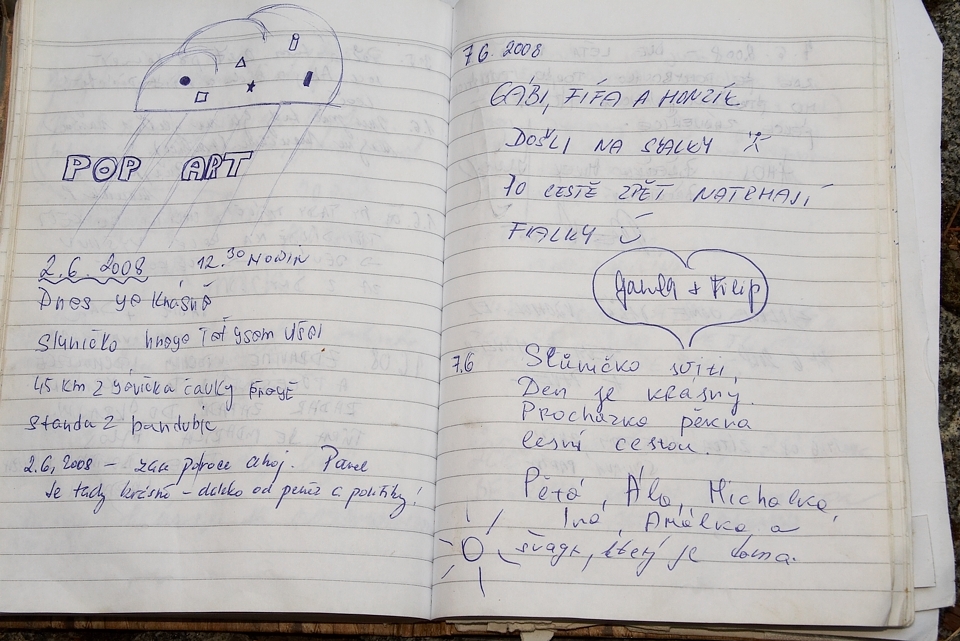 POP ART
2.6.2008 12.30 HODIN
Dnes ye Krásně
Sluníčko hraye Teť ysem Ušel
45 km z
standa z pandubic
2.6, 2008 – zak po roce ahoj. Pavel
Je tady krásně – daleko od peněz a politiky!
7.6. 2008
GÁBI, FIFA A HONZÍK
DOŠLI NA SKALKY
PO CESTĚ ZPĚT NATRHAJÍ
FIALKY
+ Filip
7.6 Slůníčko svítí,
Den je krásný.
Procházka pěkná
lesní cestou.
Péťa, Ála, Michalka,
Iva, Amálka a
švagr, který je doma.